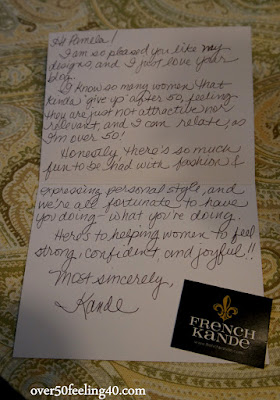 Hi Pamela!
I am so pleased you like my
designs, and I just love your
blog.
I know so many women that
kinda "give up" after 50, feeling
they are just not attractive nor
relevant, and I can relate, as
I'm over 50!
Honestly, there's so much
fun to be had with fashion &
expressing personal style, and
we're all fortunate to have
you doing what you're doing.
Here's to helping women to feel
strong, confident and joyful!!
Most sincerely,
Kande
FRENCH
KANDE
over50feeling40.com